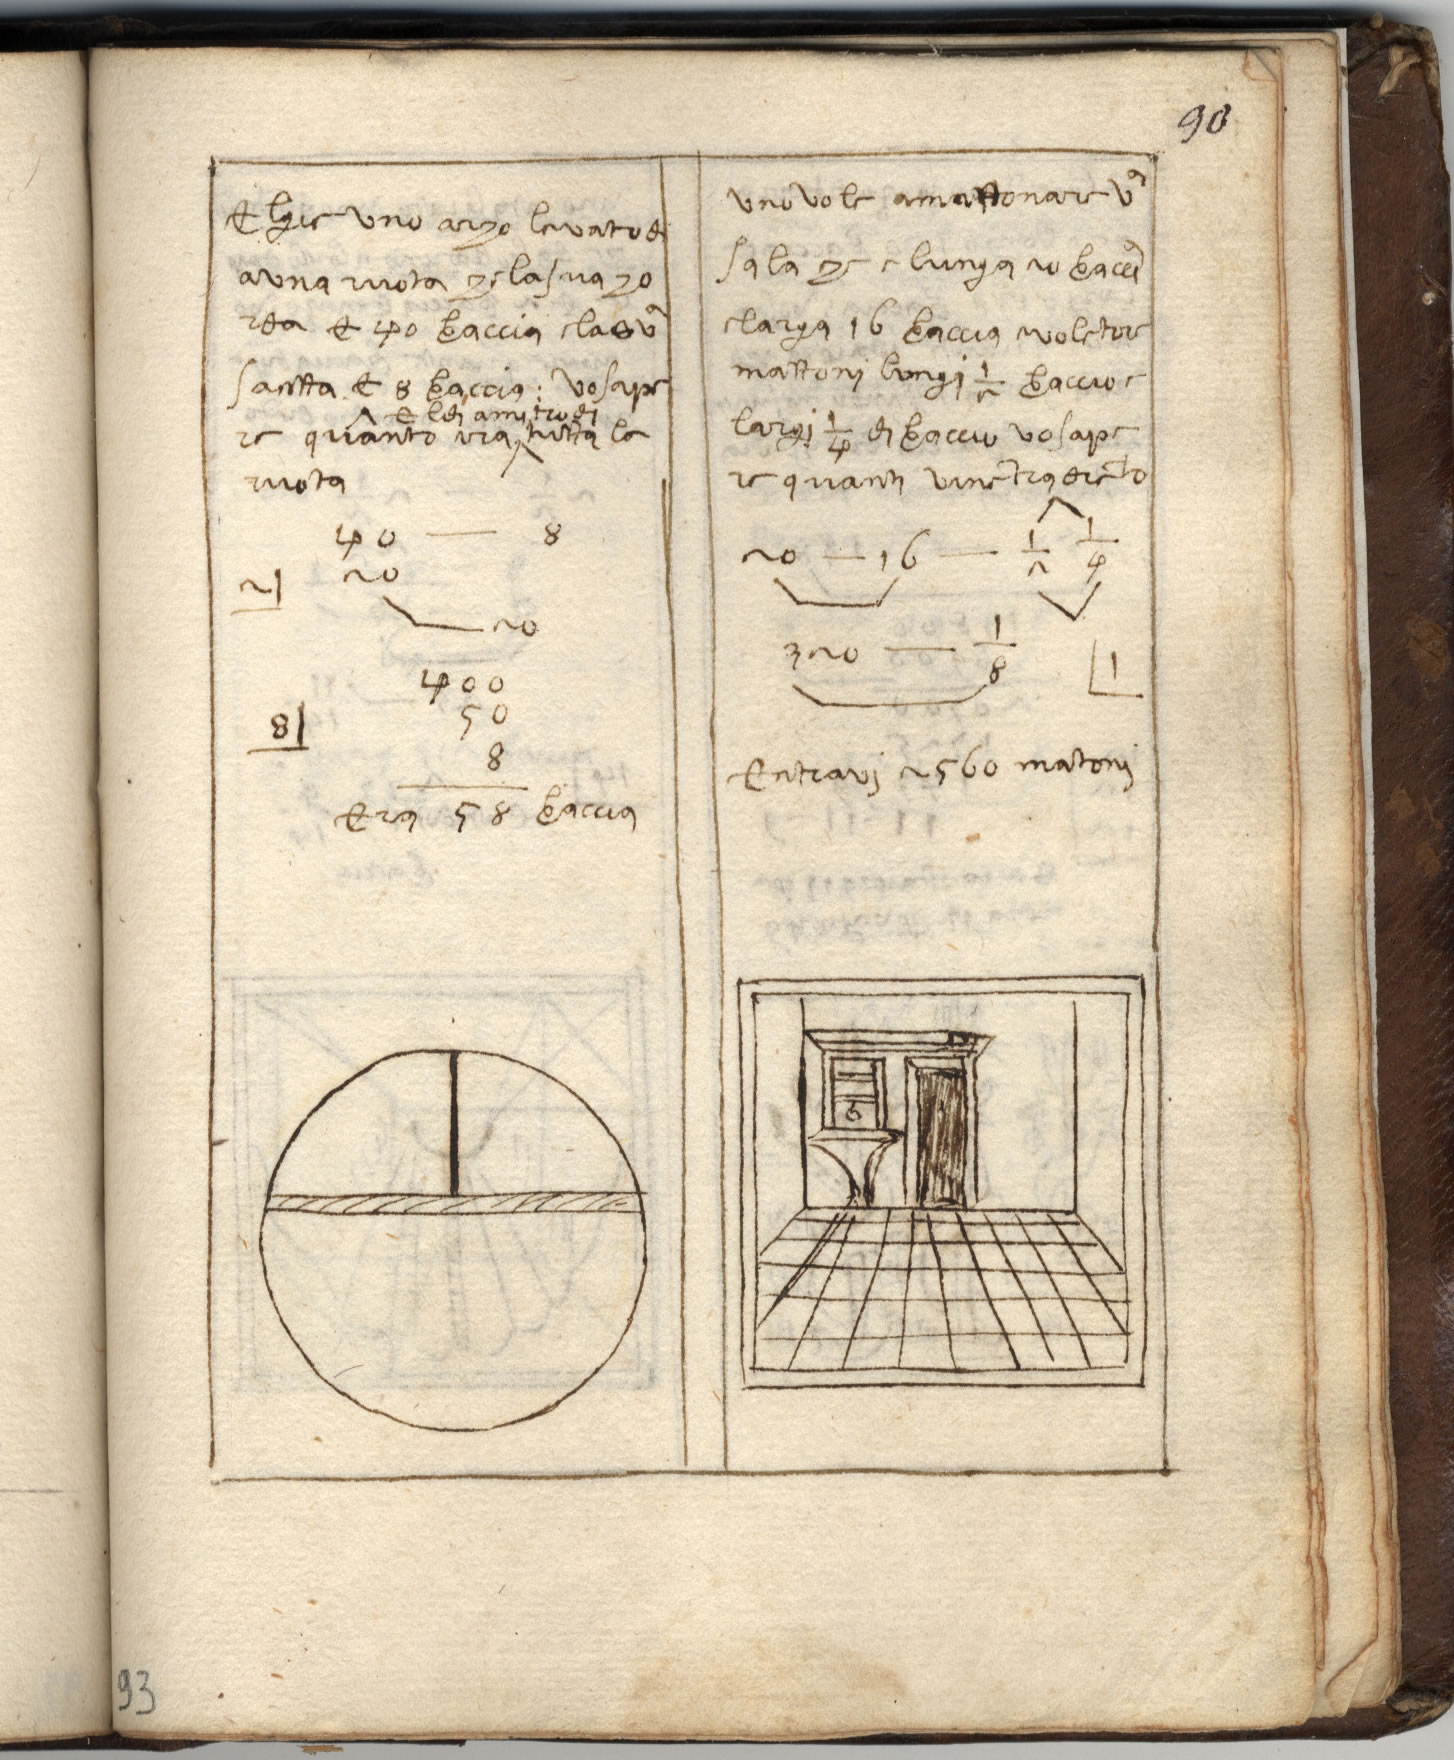 90
Egie uno arzo levato di
a una ruota che la sua zo
rda è 40 baccia e la sua
saetta è 8 baccia: vo sape
è el diamitro di
re quanto era tutta le
ruota
40 — 8
2| 20
20
400
50
8| 8
Era 58 baccia
uno vole amattonare una
sala che è lunga 20 bacci
e larga 16 baccia vole tor
mattoni lungi 1/2 baccio e
largi 1/4 di baccio vo sape
re quanti vi n'entra drento
20 — 16 — 1/2 1/4
320 — 1/8 |1
Entravi 2560 matoni
93